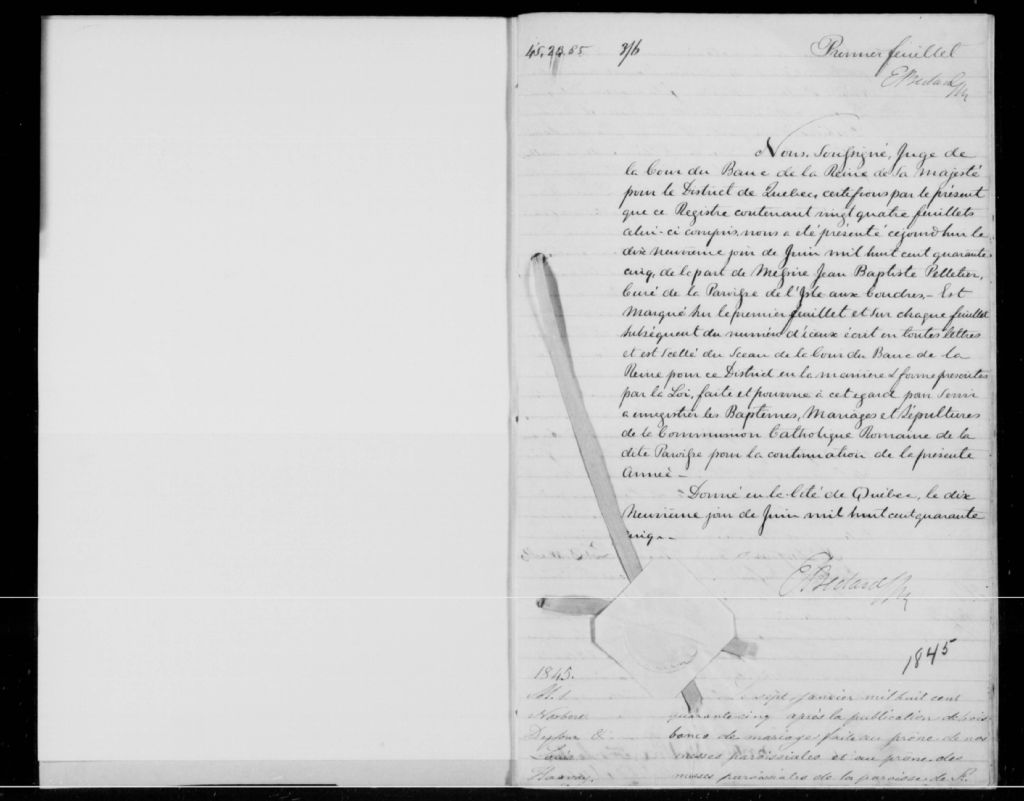 3/6 Premier feuillet
E Bedard
Nous, Soussigné, Juge de
la Cour du Banc de la Reine de Sa Majesté
pour le District de Quebec, certifions par le présent
que ce Régistre contenant vingt quatre feuillets
celui-ci compris, nous a été présenté cejourd'hui le
dix neuvieme jour de Juin mil huit cent quarante
cinq, de la part de Messire Jean Baptiste Pelletier,
Curé de la Paroisse de l'Isle aux Coudres, - Est
Marqué Sur le premier feuillet et sur chaque feuillet
Subséquent du numéro d'iceux écrit en toutes lettres
et est Scellé du Sceau de la Cour du Banc de la
Reine pour ce District en la maniere & forme prescrites
par la Loi, faite et pourvue à cet egard pour Servir
a enregistrer les Baptemes, Mariages et Sépultures
de la Communion Catholique Romaine de la
dite Paroisse pour la continuation de la présente
Année -
Donné en la Cité de Québec, le dix
Neuvieme jour de Juin mil huit cent quarante
cinq. -
E Bedard
1845
1845.
M. 1
sept Janvier mil huit cent
Norbert quarante cinq après la publication de trois
Dufour & bancs de mariage faite au prône de nos
Louise messes paroissiales et au prône des
Harvay. messes paroissiales de la paroisse de St.